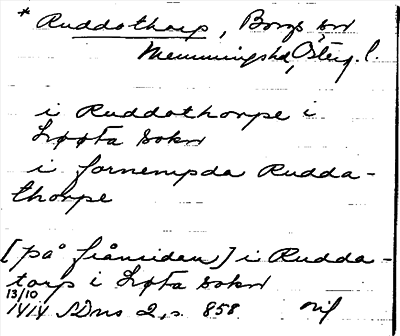 * Ruddothorp, Borgs sn
Memmingshd, Österg. l.
i Ruddothorpe i
Løøsta sokn
i fornempda Rudda-
thorpe
[på frånsidan] i Rudda-
torp i Løsta sokn
13/10
1414 SDns 2, s. 858 orif